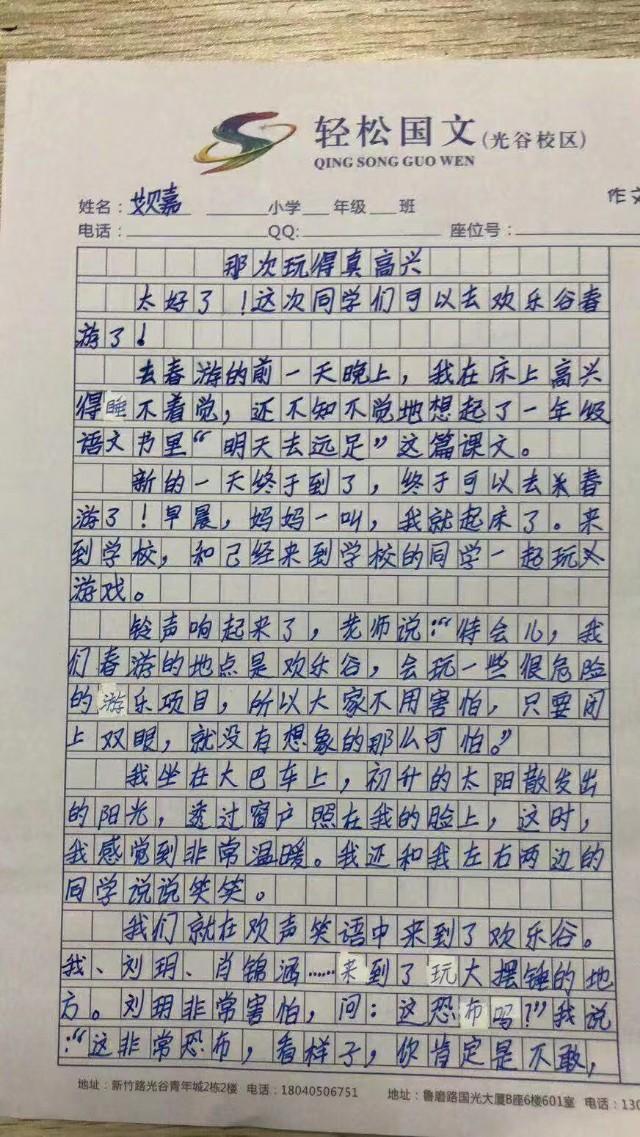 轻松国文(光谷校区)
QING SONG GUO WEN
作文
姓名：嘉 小学 年级 班
电话： QQ: 座位号：
那次玩得真高兴
太好了！这次同学们可以去欢乐谷春
游了！
去春游的前一天晚上，我在床上高兴
得睡不着觉，还不知不觉地想起了一年级
语文书里“明天去远足”这篇课文。
新的一天终于到了，终于可以去春
游了！早晨，妈妈一叫，我就起床了。来
到学校，和己经来到学校的同学一起玩
游戏。
铃声响起来了，老师说：“待会儿，我
们春游的地点是欢乐谷，会玩一些很危险
的游乐项目，所以大家不用害怕，只要闭
上双眼，就没有想象的那么可怕。”
我坐在大巴车上，初升的太阳散发出
的阳光，透过窗户照在我的脸上，这时，
我感觉到非常温暖。我还和我左右两边的
同学说说笑笑。
我们就在欢声笑语中来到了欢乐谷。
我、刘玥、肖锦涵……来到了玩大摆锤的地
方。刘玥非常害怕，问：这恐布吗？”我说
：“这非常恐布，看样子，你肯定是不敢，
地址：新竹路光谷青年城2栋2楼 电话：18040506751 地址：鲁磨路国光大厦B座6楼601室 电话：130